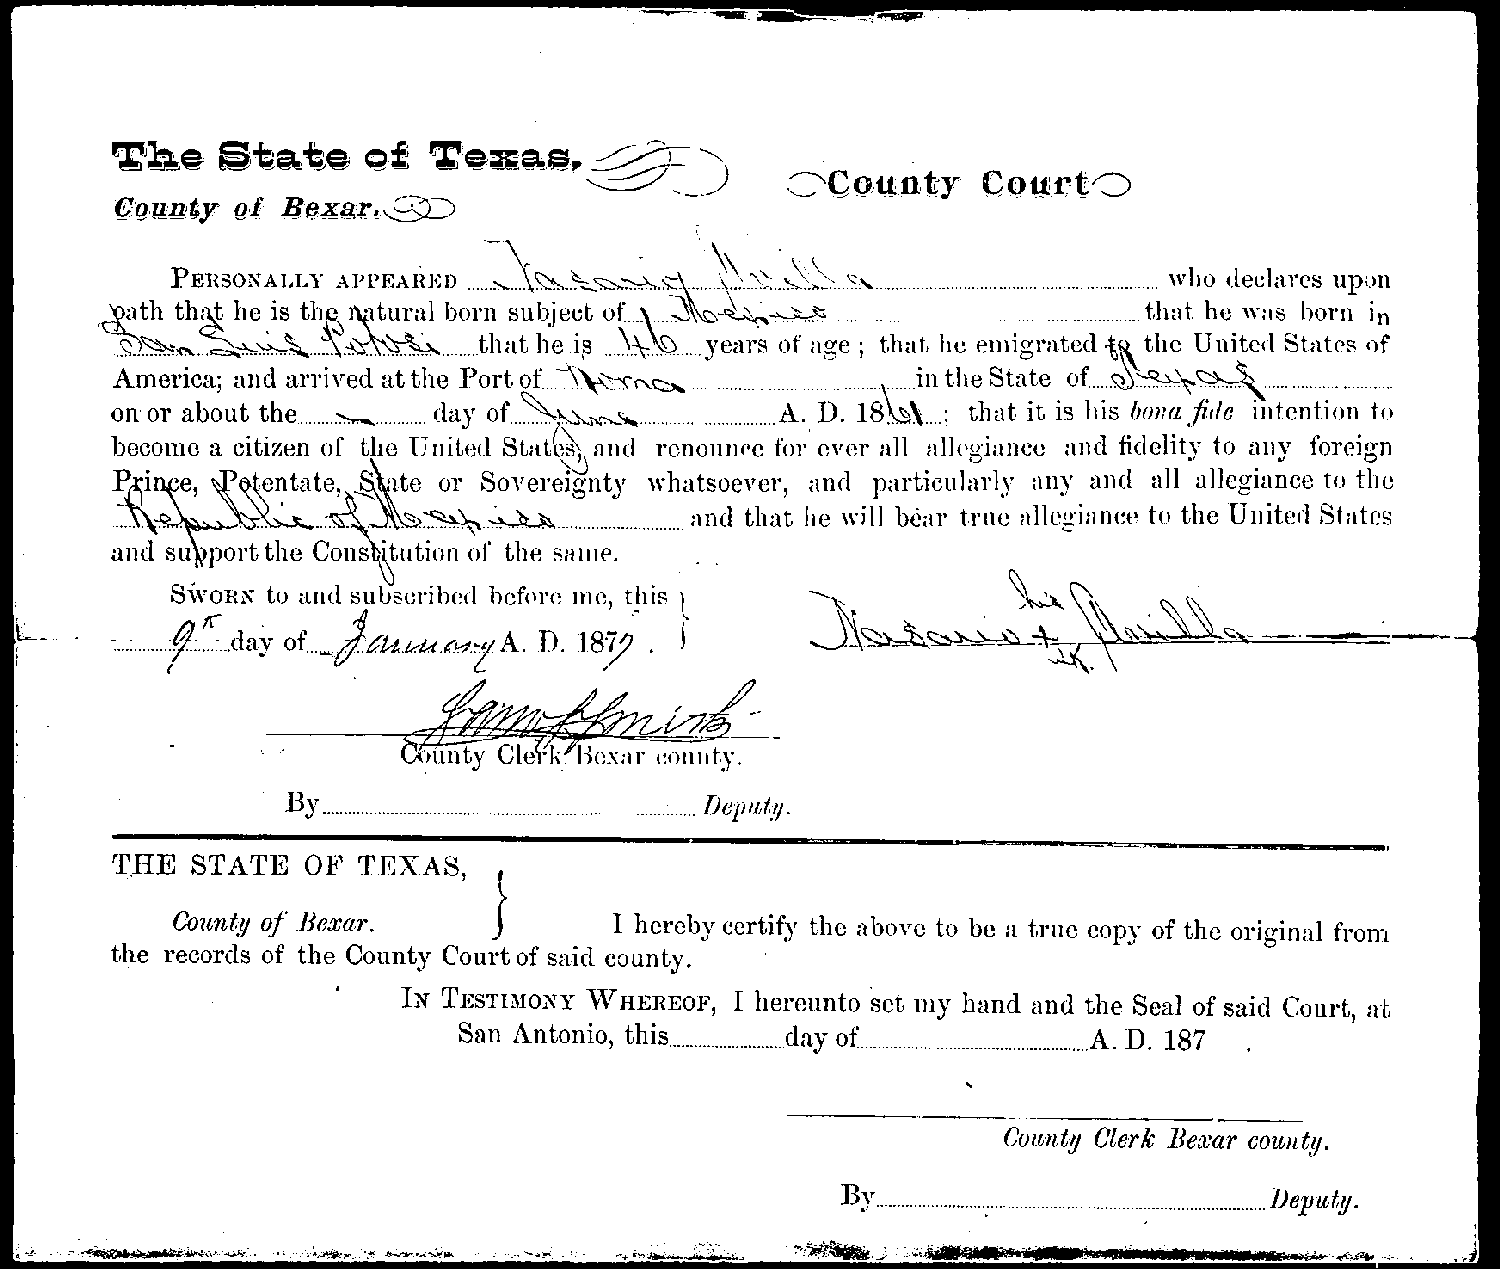 The State of Texas,
County Court
County of Bexar.
PERSONALLY APPEARED Nasario who declares upon
oath that he is the natural born subject of Mexico that he was born in
San Luis Potosi that he is 46 years of age; that he emigrated to the United States of
America; and arrived at the Port of Roma in the State of Texas
on or about the — day of June A. D. 1861; that it is his bona fide intention to
become a citizen of the United States, and renounce for ever all allegiance and fidelity to any foreign
Prince, Potentate, State or Sovereignty whatsoever, and particularly any and all allegiance to the
Republic of Mexico and that he will bear true allegiance to the United States
and support the Constitution of the same.
SWORN to and subscribed before me, this
9th day of January A. D. 1877.
his
Nasario x
mk.
Sam S Smith
County Clerk Bexar county.
By Deputy.
THE STATE OF TEXAS,
County of Bexar. I hereby certify the above to be a true copy of the original from
the records of the County Court of said county.
IN TESTIMONY WHEREOF, I hereunto set my hand and the Seal of said Court, at
San Antonio, this day of A. D. 187 .
County Clerk Bexar county.
By Deputy.